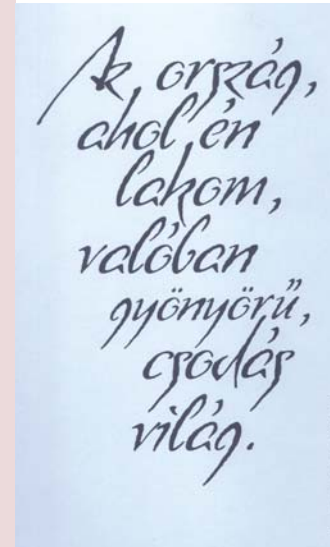 Az ország,
ahol én
lakom,
valóban
gyönyörű,
csodás
világ.